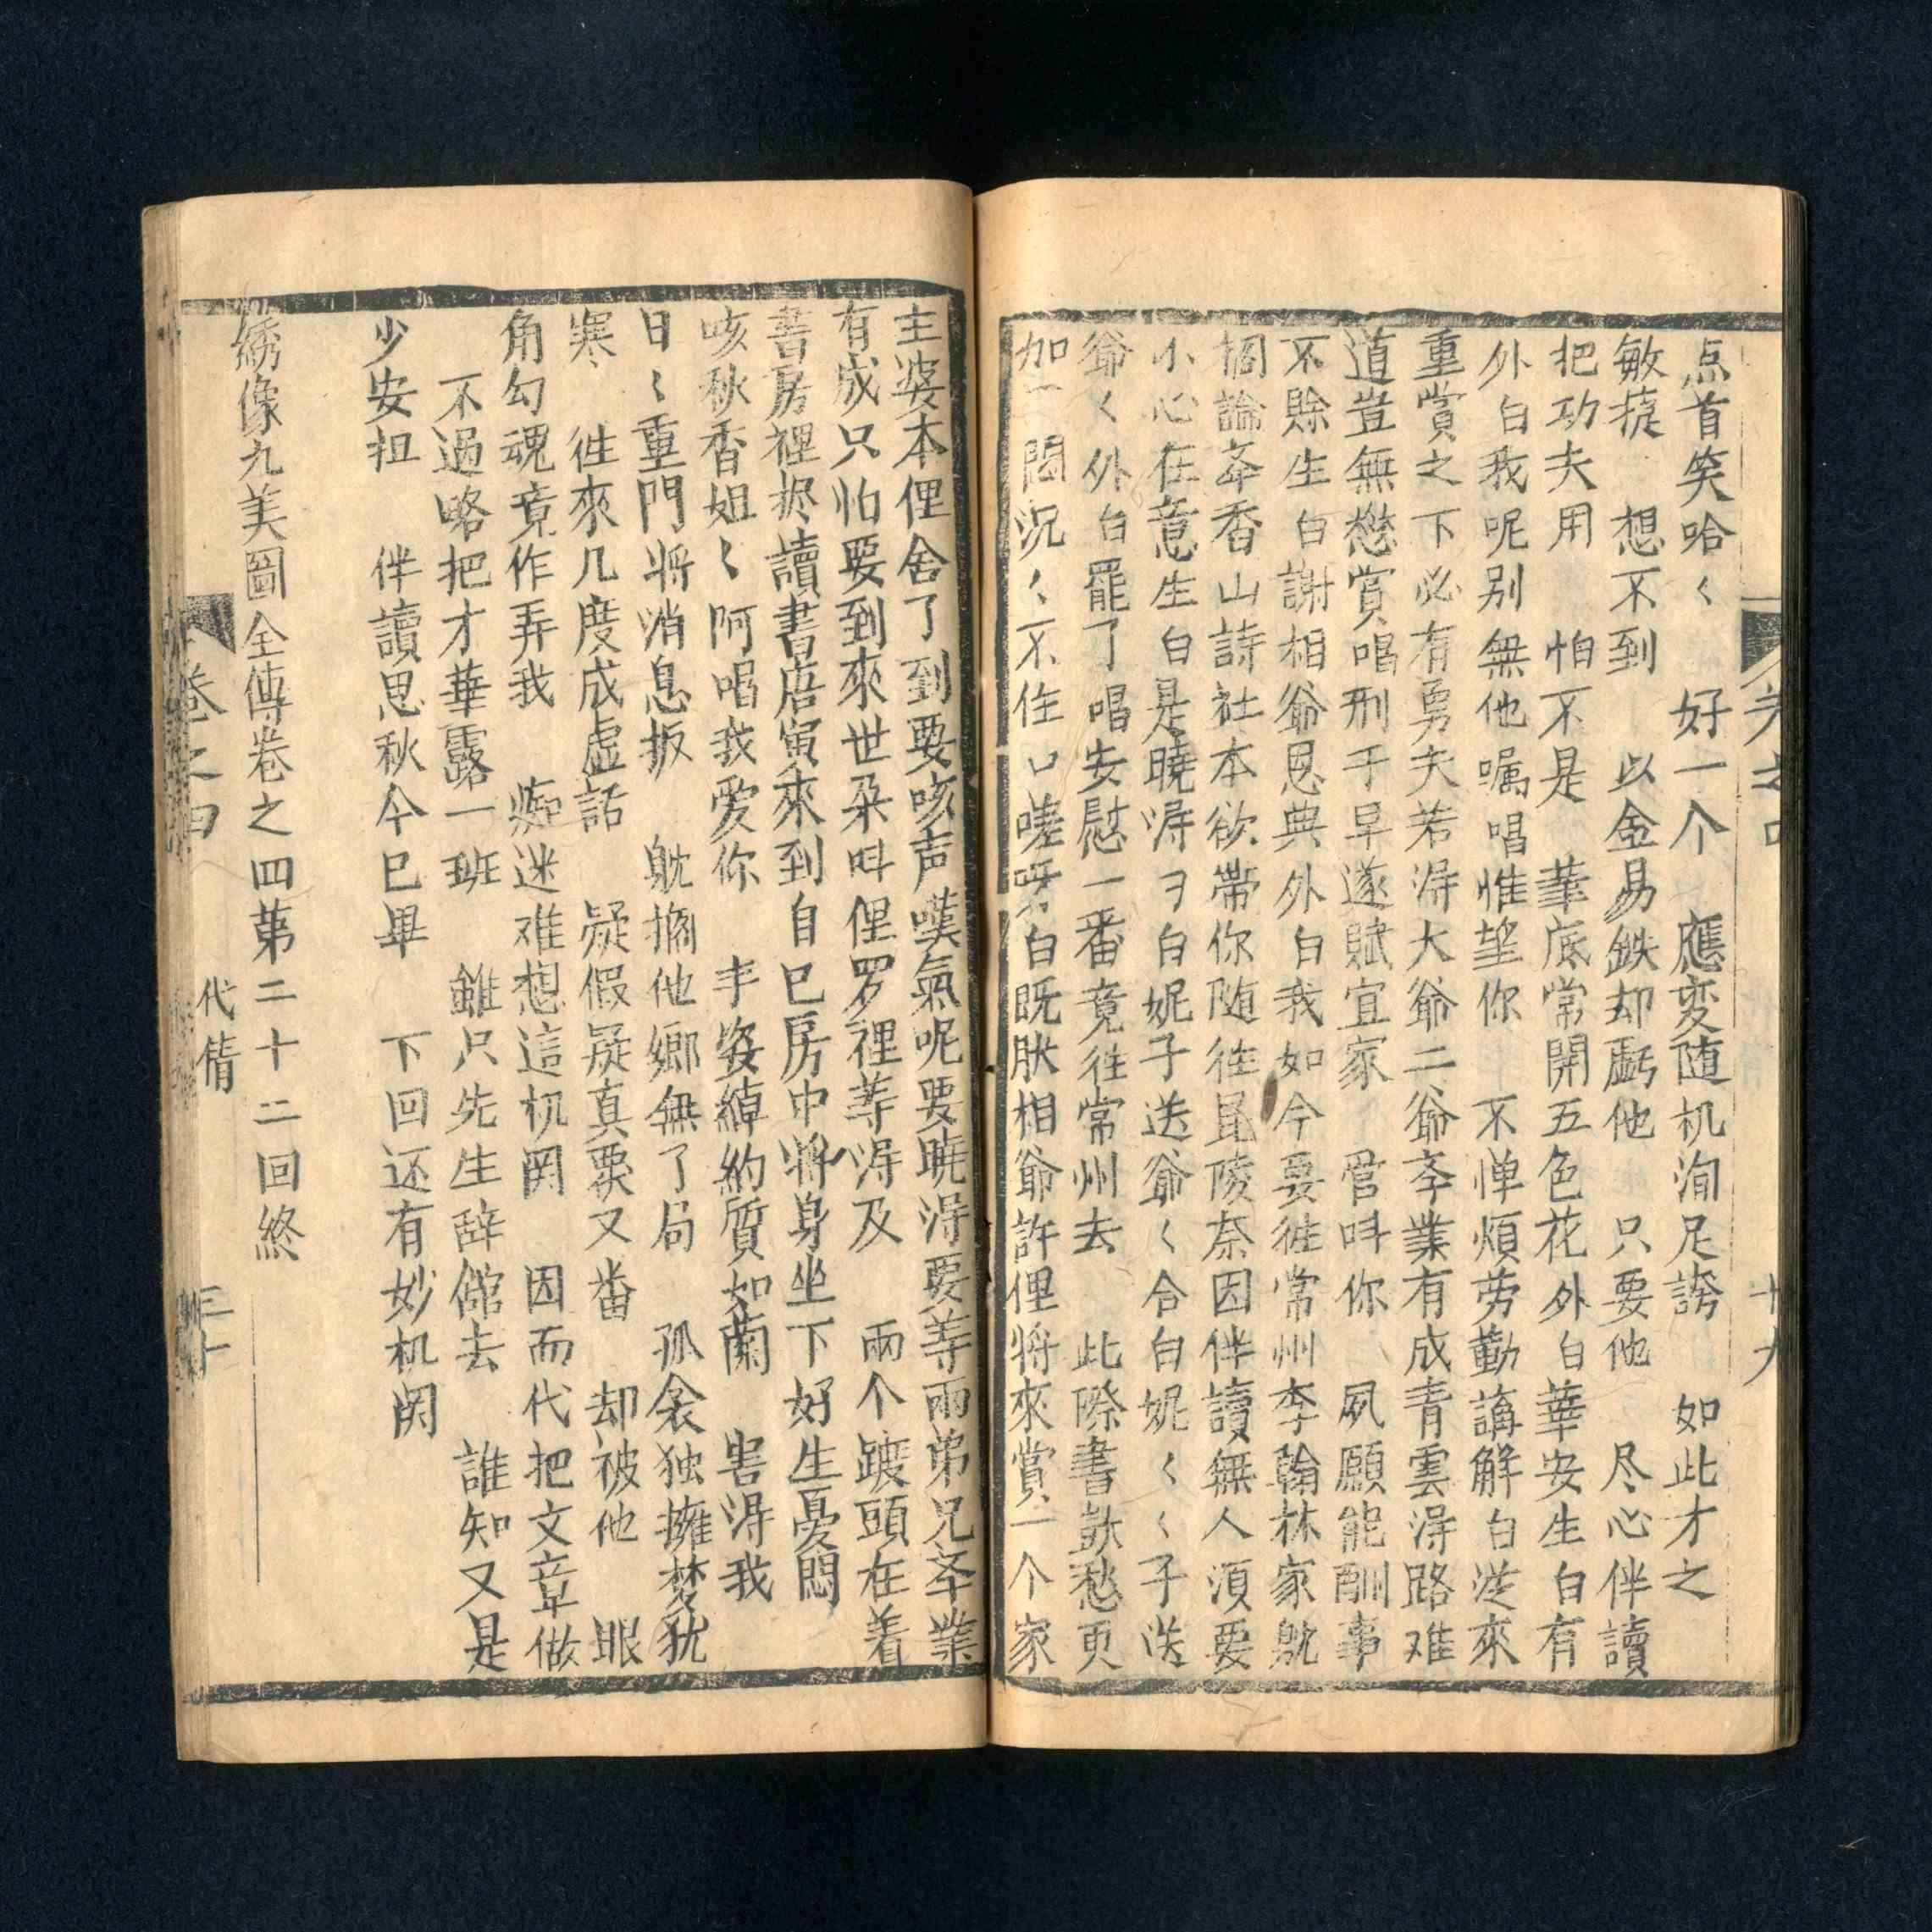 卷之四 十九
点首笑哈〱 好一个 應変随机洵足誇 如此才之
敏㨗 想不到 以金易鉄却虧他 只要他 尽心伴讀
把功夫用 怕不是 筆底常開五色花 外白華安生白有
外白我呢别無他嘱唱惟望你 不惮煩劳勤講解白従來
重賞之下必有勇夫若淂大爺二爺斈業有成青雲淂路难
道豈無懋賞唱刑于早遂賦宜家 管呌你 夙願能酬事
不賖生白謝相爺恩典外白我如今要徃常州李翰林家躭
搁論斈香山詩社本欲帶你随徃毘陵奈因伴讀無人湏要
小心在意生白是曉淂ヲ白妮子送爺〱合白妮〱〱子送
爺〱外白罷了唱安慰一番竟徃常州去 此際書獃愁更
加 悶沉〱不住口嗟呀白既肰相爺許俚将來賞一个家
主婆本俚舍了到要咳声嘆氣呢要曉淂要等兩弟兄斈業
有成只怕要到來世朶呌俚罗裡等淂及 兩个䠋頭在着
書房裡於讀書唐寅來到自已房中將身坐下好生憂悶
咳秋香姐〱阿唱我爱你 丰姿綽約質如蘭 害淂我
日〱重門将消息扳 躭搁他鄉無了局 孤衾独擁梦犹
寒 徃來几度成虚話 疑假疑真栗又番 却被他 眼
角勾魂竟作弄我 痴迷难想這机関 因而代把文章做
不過略把才華露一班 雖只先生辞館去 誰知又是
少安扭 伴讀思秋今已畢 下回还有妙机関
綉像九美圖全傳卷之四苐二十二回終
卷之四 代倩 三十